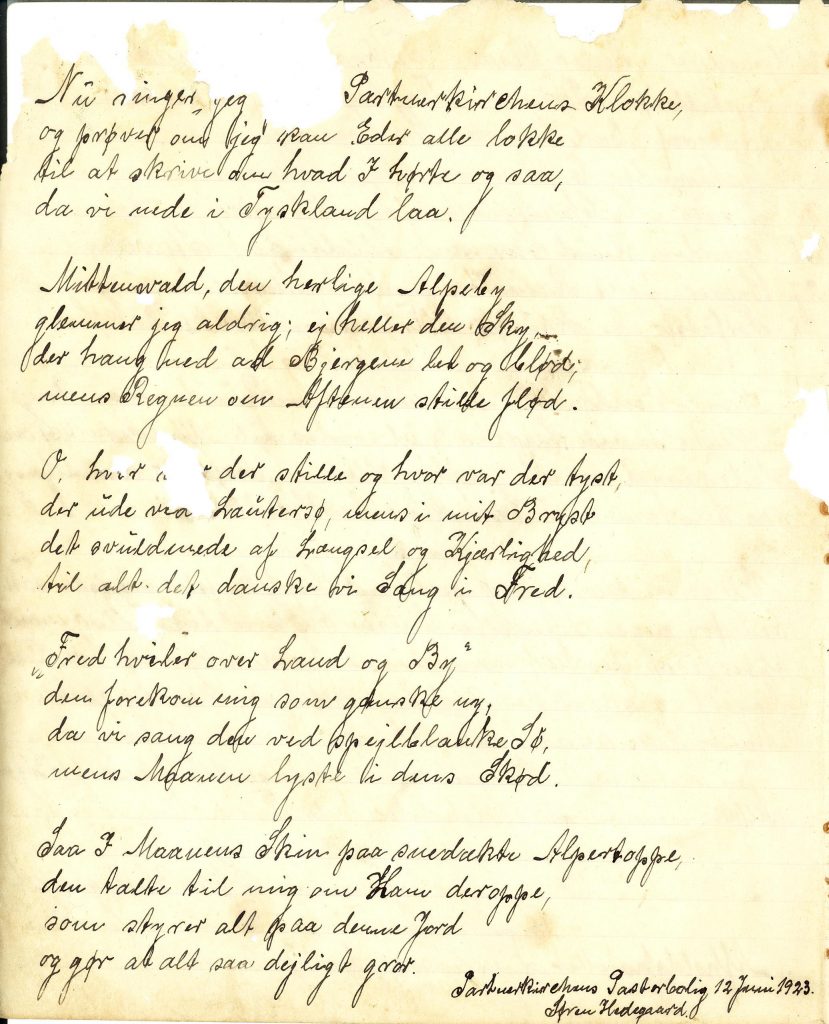 Nu ringer jeg Partnerkirchens Klokke,
og prøver om "jeg" kan Eder alle lokke
til at skrive om hvad I hørte og saa,
da vi nede i Tyskland laa.
Mittenwald, den herlige Alpeby
glemmer jeg aldrig; ej heller den Sky,
der hang ned ad Bjergene let og blød;
mens Regnen om Aftenen stille flød.
O, hvor var der stille og hvor var der tyst,
der ude ved Lautersø, mens i mit Bryst
det svulmede af Længsel og Kjærlighed,
til alt det danske vi Sang i Fred.
„Fred hviler over Land og By"
den forekom mig som ganske ny,
da vi sang den ved spejlblanke Sø,
mens Maanen lyste i dens Skød.
Saa I Maanens Skin paa snedækte Alpertoppe,
den talte til mig om Ham deroppe,
som styrer alt paa denne Jord
og gør at alt saa dejligt gror.
Partnerkirchens Pastorbolig 12 Juni 1923.
Søren Hedegaard.